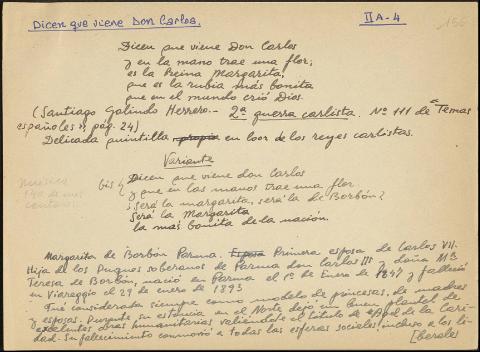 Dicen que viene Don Carlos. II A-4 155
Dicen que viene Don Carlos
y en la mano trae una flor;
es la Reina Margarita,
que es la rubia más bonita
que en el mundo crió Dios.
(Santiago Galindo Herrero.- 2ª guerra carlista. Nº 111 de "Temas
españoles", pág. 24)
Delicada quintilla en loor de los reyes carlistas.
Variante
bis { Dicen que viene don Carlos
y que en las manos trae una flor
¿Será la margarita, será la de Borbón?
Será la Margarita
la más bonita de la nación.
Margarita de Borbón Parma. Primera esposa de Carlos VII.
Hija de los Duques soberanos de Parma don Carlos III y doña Mª
Teresa de Borbón, nació en Parma el 1º de Enero de 1847 y falleció
en Viareggio el 29 de enero de 1893
Fue considerada siempre como modelo de princesas, de madres
y esposas. Durante su estancia en el Norte dejó un buen plantel de
excelentes obras humanitarias valiéndole el título de "Angel de la Cari-
dad". Su fallecimiento conmovió a todas las esferas sociales, incluso a los li-
[berales